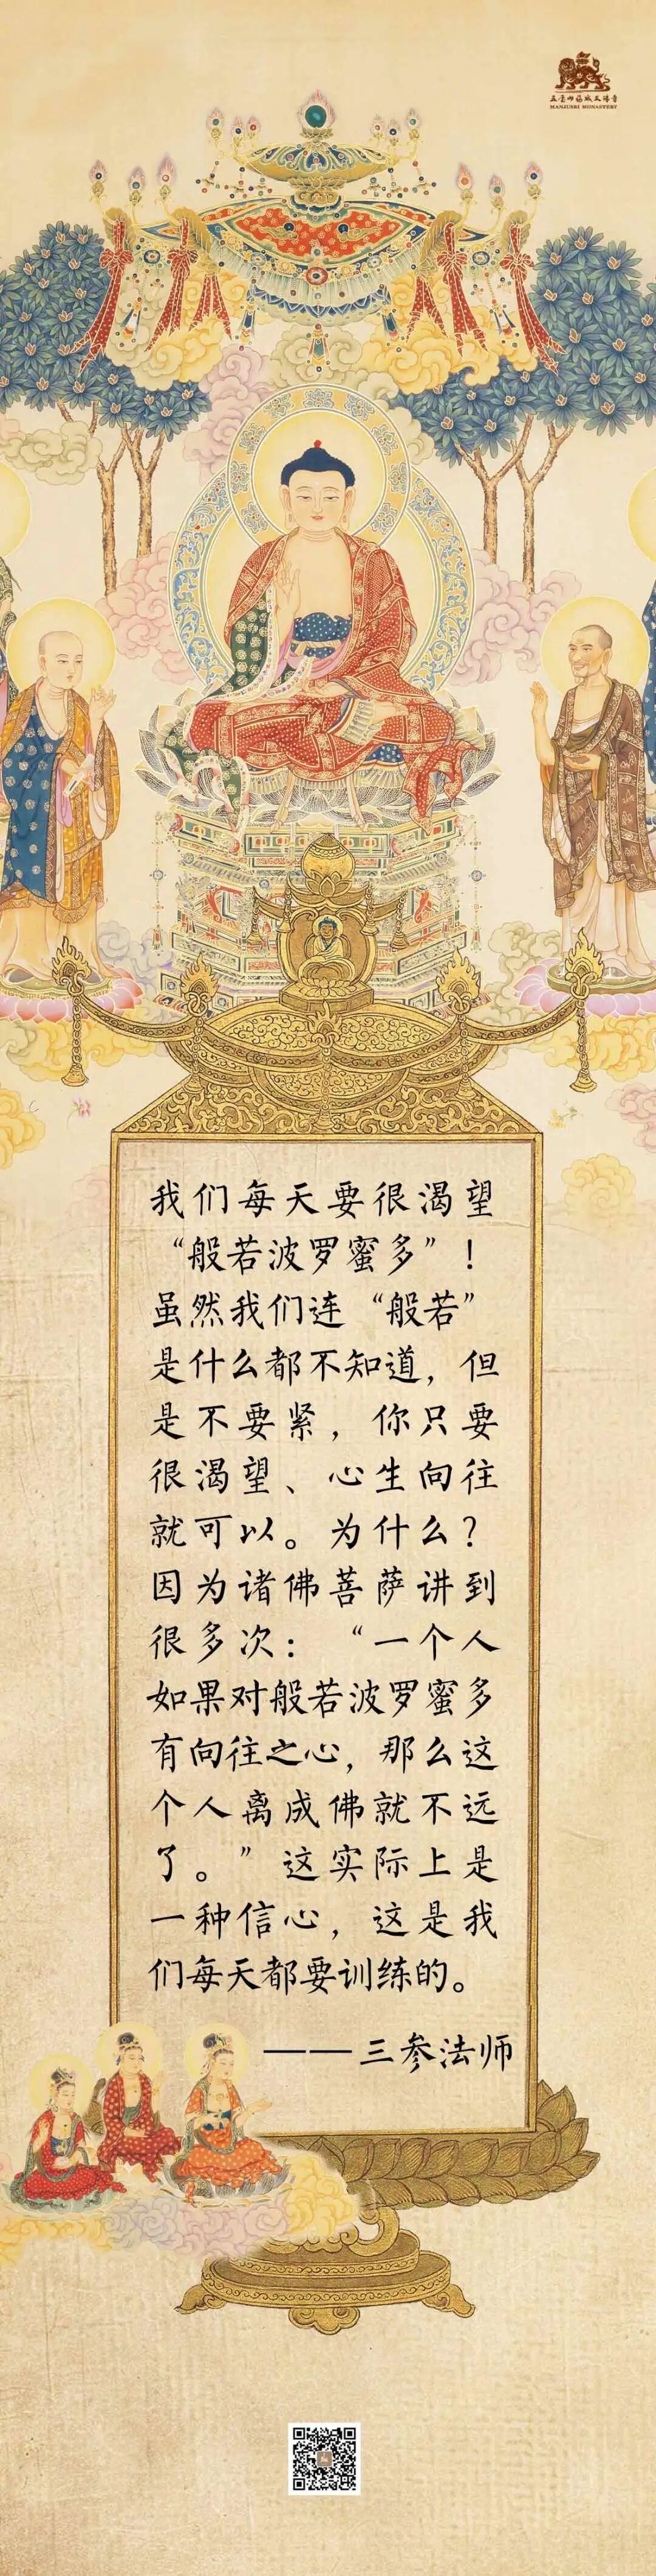 MANJUSRI MONASTERY
我们每天要很渴望
“般若波罗蜜多”！
虽然我们连“般若”
是什么都不知道，但
是不要紧，你只要
很渴望、心生向往
就可以。为什么？
因为诸佛菩萨讲到
很多次：“一个人
如果对般若波罗蜜多
有向往之心，那么这
个人离成佛就不远
了。”这实际上是
一种信心，这是我
们每天都要训练的。
——三参法师